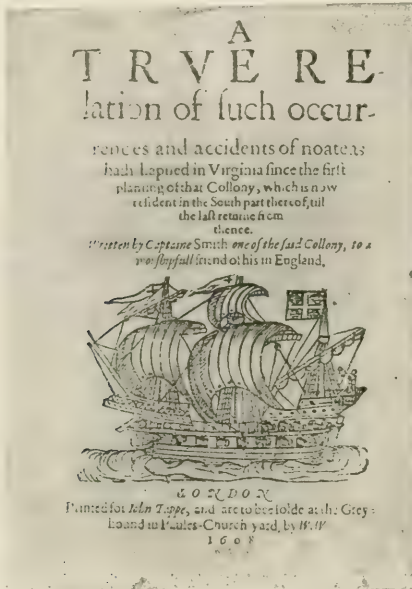 A
TRVE RE-
lation of ſuch occur-
rences and accidents of noate as
hath hapned in Virginia ſince the firſt
planting of that Collony, which is now
reſident in the South part thereof, till
the laſt returne from
thence.
Written by Captaine Smith one of the ſaid Collony, to a
worſhipfull friend of his in England.
LONDON
Printed for Iohn Tappe, and are to bee ſolde at the Grey-
hound in Paules-Church-yard, by W.W
1608